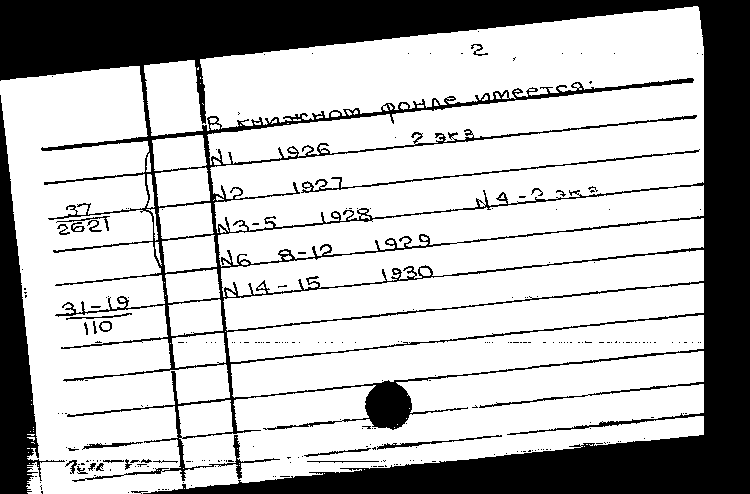 2
В книжном фонде имеется:
N1 1926 2 экз.
N2 1927
37
2621
N3-5 1928 N4-2 экз
N6 8-12 1929
N14-15 1930
31-19
110